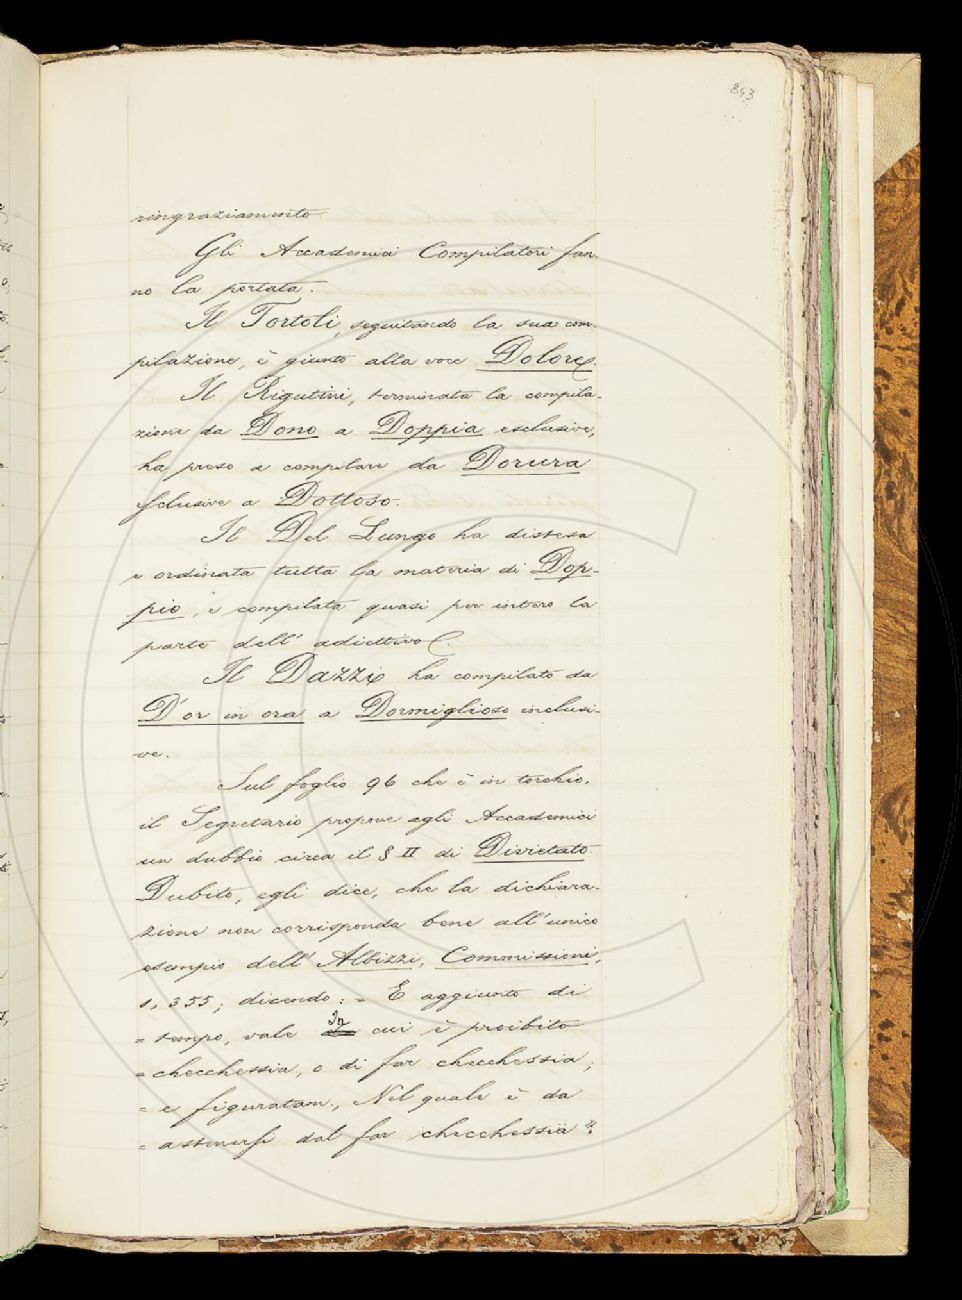 843
ringraziamento.
Gli Accademici Compilatori fan
no la portata.
Il Tortoli, seguitando la sua com-
pilazione, è giunto alla voce Dolore.
Il Rigutini, terminata la compila-
zione da Dono a Doppia esclusive,
ha preso a compilare da Dorura
esclusive a Dottoso.
Il Del Lungo ha distesa
e ordinata tutta la materia di Dop-
pio, e compilata quasi per intero la
parte dell' adiettivo.
Il Dazzi ha compilato da
D'or in ora a Dormiglioso inclusi-
ve.
Sul foglio 96 che è in torchio,
il Segretario propone agli Accademici
un dubbio circa il § II di Divietato
Dubito, egli dice, che la dichiara-
zione non corrisponda bene all'unico
esempio dell' Albizzi, Commissioni,
1, 355; dicendo: = E aggiunto di
= tempo, vale In cui è proibito
= checchessia, o di far checchessia;
= e figuratam., Nel quale è da
= astenersi dal far checchessia".